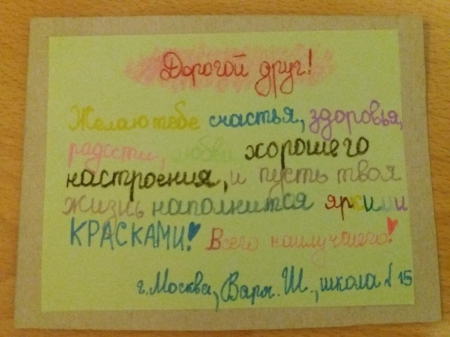 Дорогой друг!
Желаю тебе счастья, здоровья,
радости, любви, хорошего
настроения, и пусть твоя
жизнь наполнится яркими
КРАСКАМИ! Всего наилучшего!
г. Москва, Варш. Ш., школа № 15